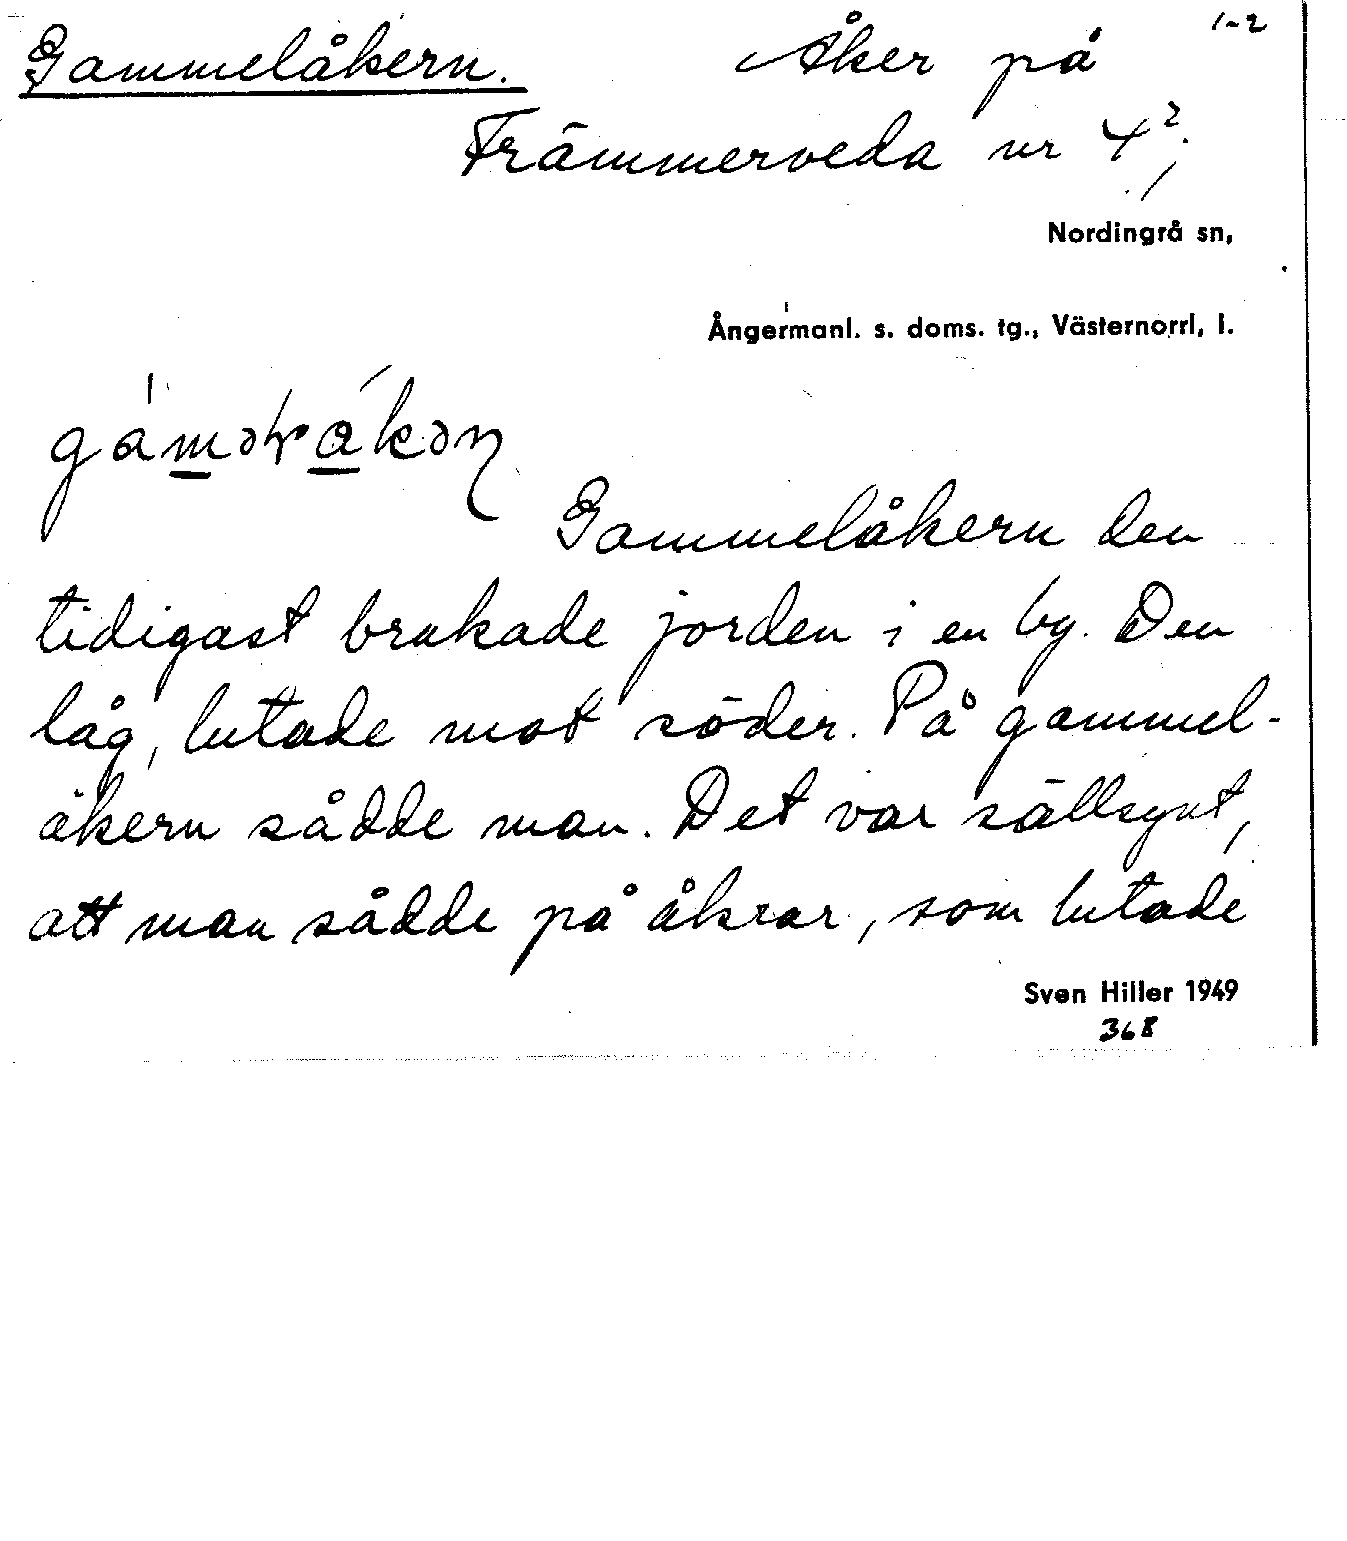 1-2
Gammelåkern. Åker på
Främmerveda nr 4²,
Nordingrå sn,
Ångermanl. s. doms. tg., Västernorrl. l.
Gammelåkern den
tidigast brukade jorden i en by. Den
låg, lutade mot söder. På gammel-
åkern sådde man. Det var sällsynt,
att man sådde på åkrar, som lutade
Sven Hiller 1949
368